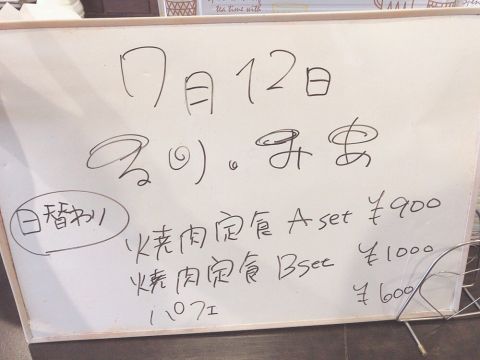 tea time with
7月12日
るり.まあ
日替わり
焼肉定食 A set ¥900
焼肉定食 B set ¥1000
パフェ ¥600